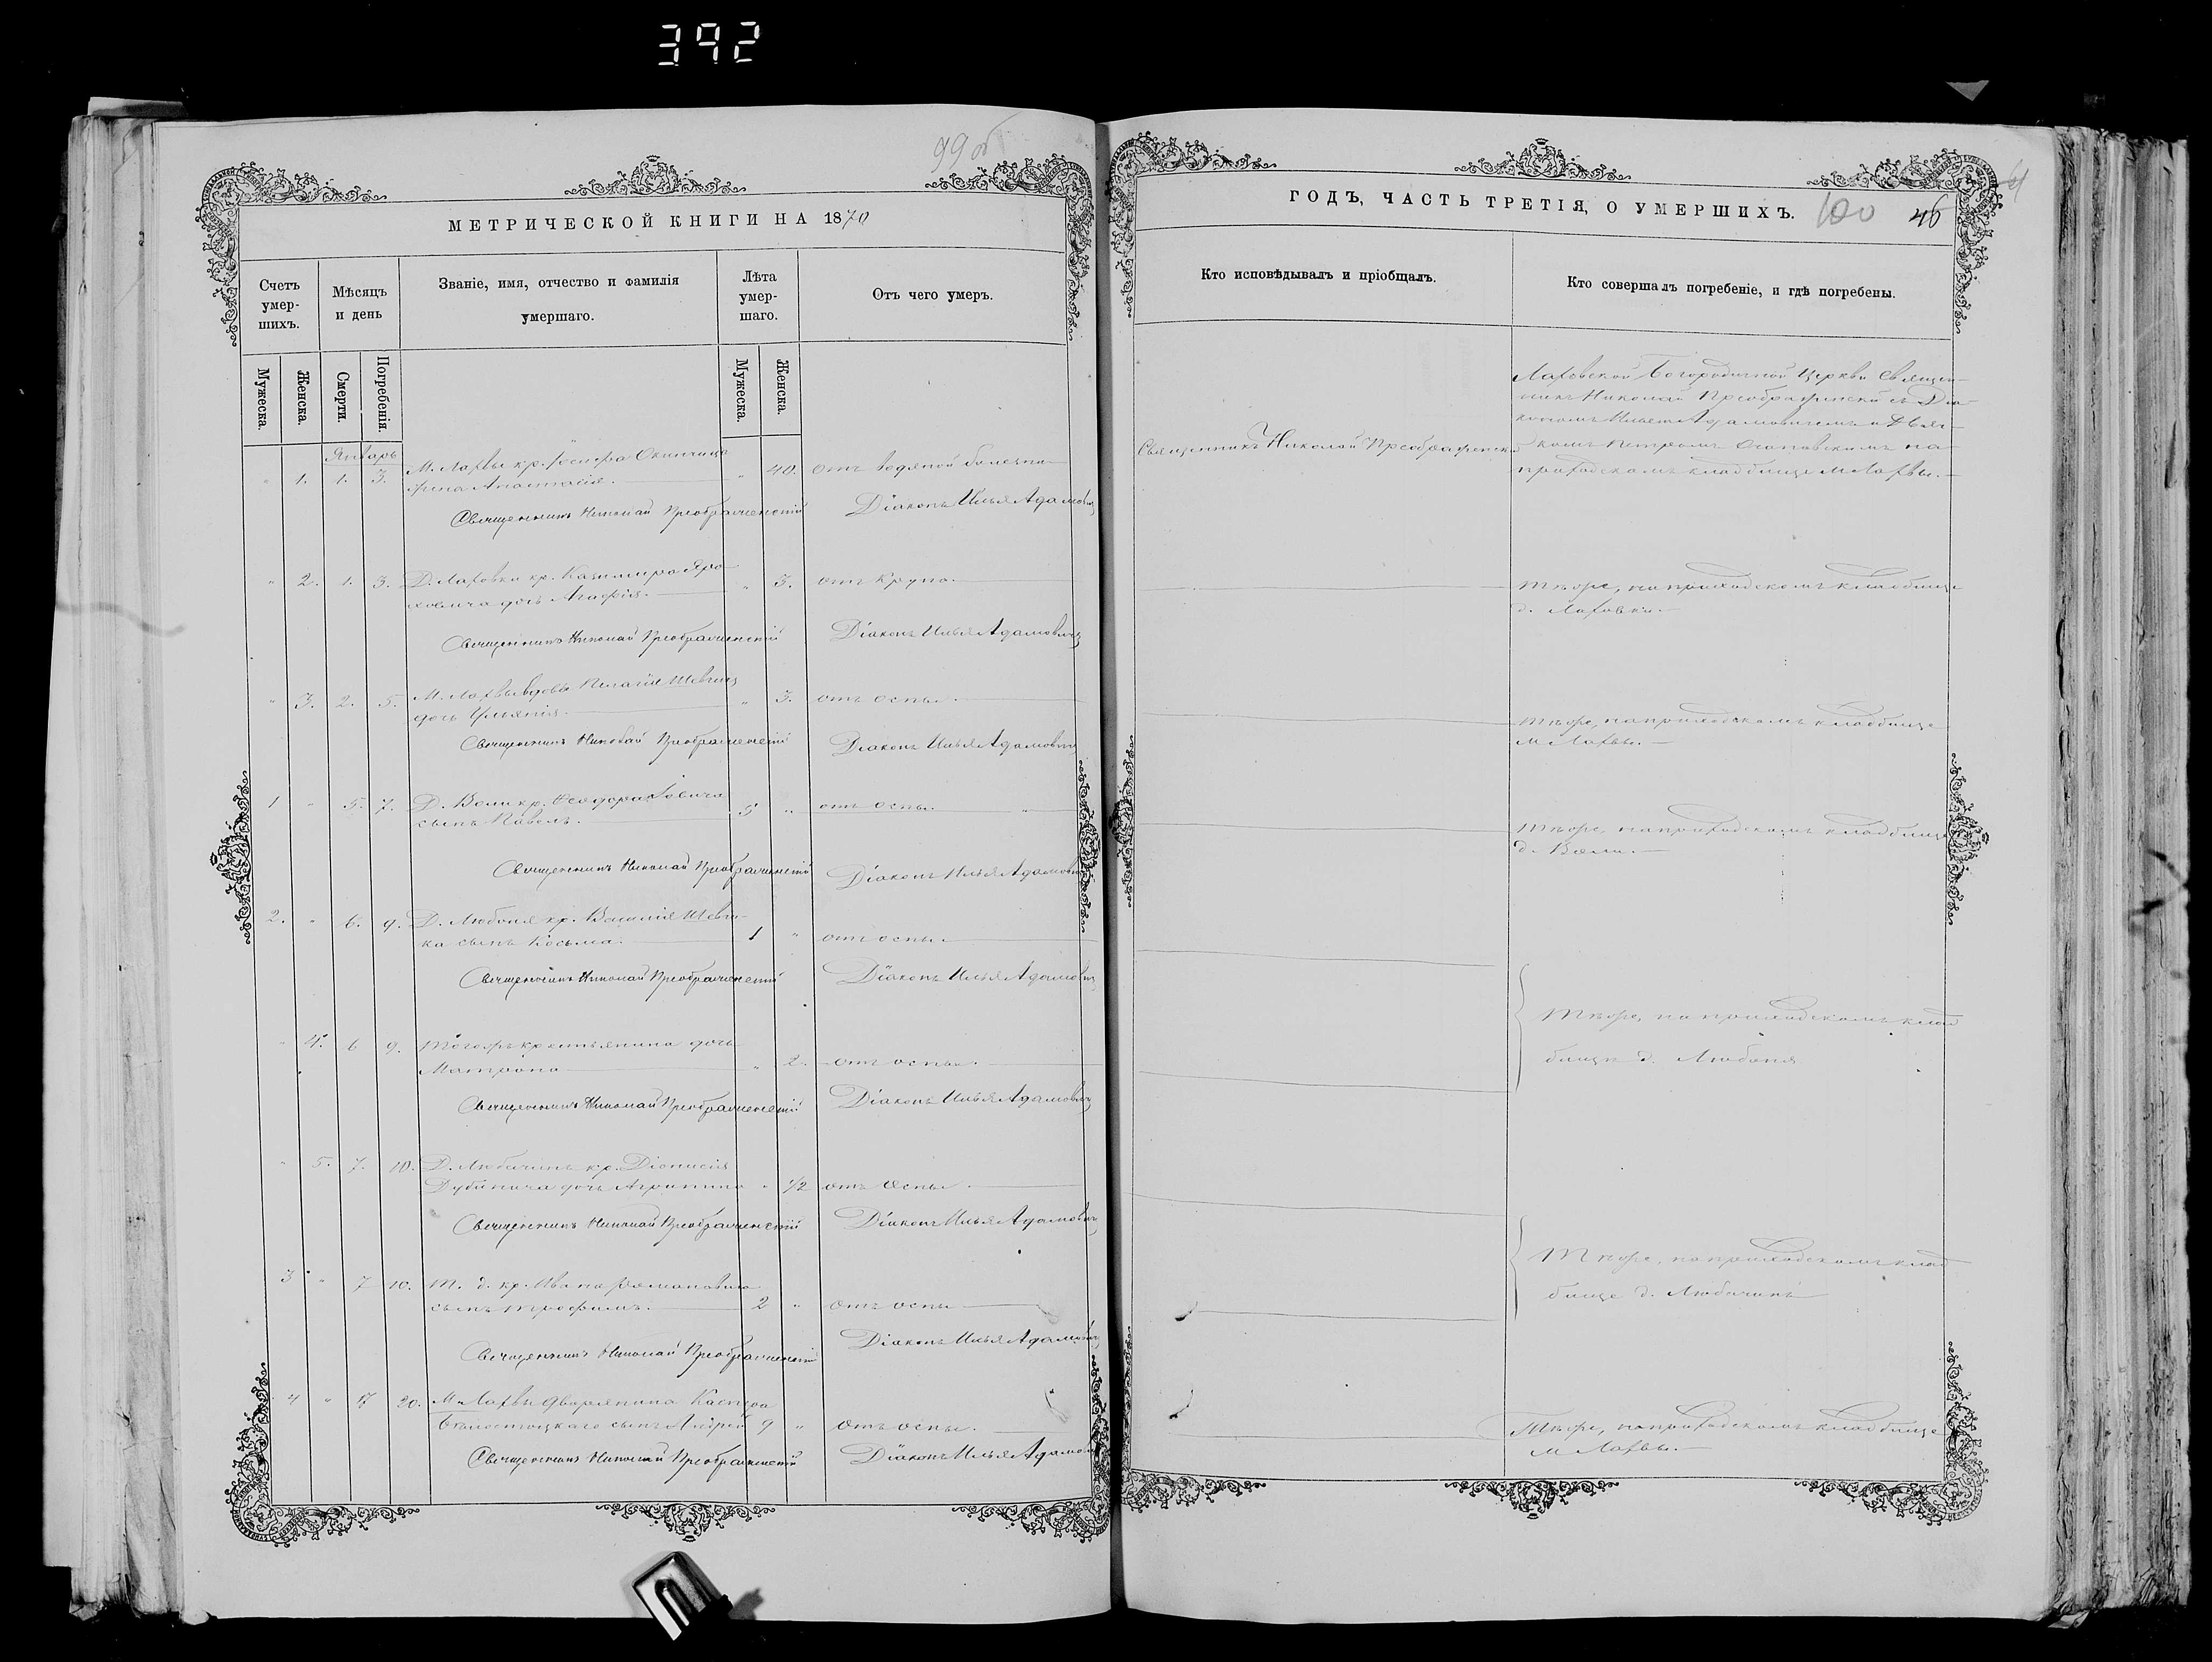 392
99 об
МЕТРИЧЕСКОЙ КНИГИ НА 1870
Счетъ умер-шихъ.
Мѣсяцъ и день
Званіе, имя, отчество и фамилія умершаго.
Лѣта умер-шаго.
Отъ чего умеръ.
Мужеска.
Женска.
Смерти.
Погребенія.
Мужеска.
Женска.
Январь
" 1. 1. 3. М. Лахвы кр. Іосифа
жена Анастасія. " 40. отъ водяной болезни
Священникъ Николай Преображенскій Діаконъ Илья Адамовичъ
" 2. 1. 3. Д. Лаховки кр. Казимира Яро-
ховича дочь Агафія. " 3. отъ крупа.
Священникъ Николай Преображенскій Діаконъ Илья Адамовичъ
" 3. 2. 5. М. Лахвы вдовы Пелагіи Шевчиц
дочь Ульянія. " 3. отъ оспы.
Священникъ Николай Преображенскій Діаконъ Илья Адамовичъ
1 " 5. 7. Д. Вели кр. Ѳеодора
сынъ Павелъ. 5 " отъ оспы.
Священникъ Николай Преображенскій Діаконъ Илья Адамовичъ
2. " 6. 9. Д. Любоня кр. Василія Шевчи-
ка сынъ Косьма. 1 " отъ оспы.
Священникъ Николай Преображенскій Діаконъ Илья Адамовичъ
" 4. 6 9. Тогожъ крестьянина дочь
Матрона " 2. отъ оспы.
Священникъ Николай Преображенскій Діаконъ Илья Адамовичъ
" 5. 7. 10. Д. Любачинъ кр. Діонисія
Дубинича дочь Агрипина " 1/2 отъ оспы.
Священникъ Николай Преображенскій Діаконъ Илья Адамовичъ
3 " 7 10. Т. д. кр. Ивана Романовича
сынъ Трофимъ. 2 " отъ оспы
Священникъ Николай Преображенскій Діаконъ Илья Адамовичъ
4 " 17 20. М. Лахвы дворянина Каспера
Бѣлостоцкаго сынъ Андрей 9 " отъ оспы.
Священникъ Николай Преображенскій Діаконъ Илья Адамовичъ
ГОДЪ, ЧАСТЬ ТРЕТІЯ, О УМЕРШИХЪ. 100 46
Кто исповѣдывалъ и пріобщалъ.
Кто совершалъ погребеніе, и гдѣ погребены.
Священникъ Николай Преображенскій
Лахвской Богородичной Церкви Священ-
никъ Николай Преображенскій съ Діа-
кономъ Ильею Адамовичемъ и Дьяч-
комъ Петромъ Осиповскимъ на
приходскомъ кладбище м. Лахвы.
Тѣже, на приходскомъ кладбище
д. Лаховки.
Тѣже, на приходскомъ кладбище
м. Лахвы.
Тѣже, на приходскомъ кладбище
д. Вели.
Тѣже, на приходскомъ клад
бище д. Любоня
Тѣже, на приходскомъ клад
бище д. Любачинъ
Тѣже, на приходскомъ кладбище
м. Лахвы.